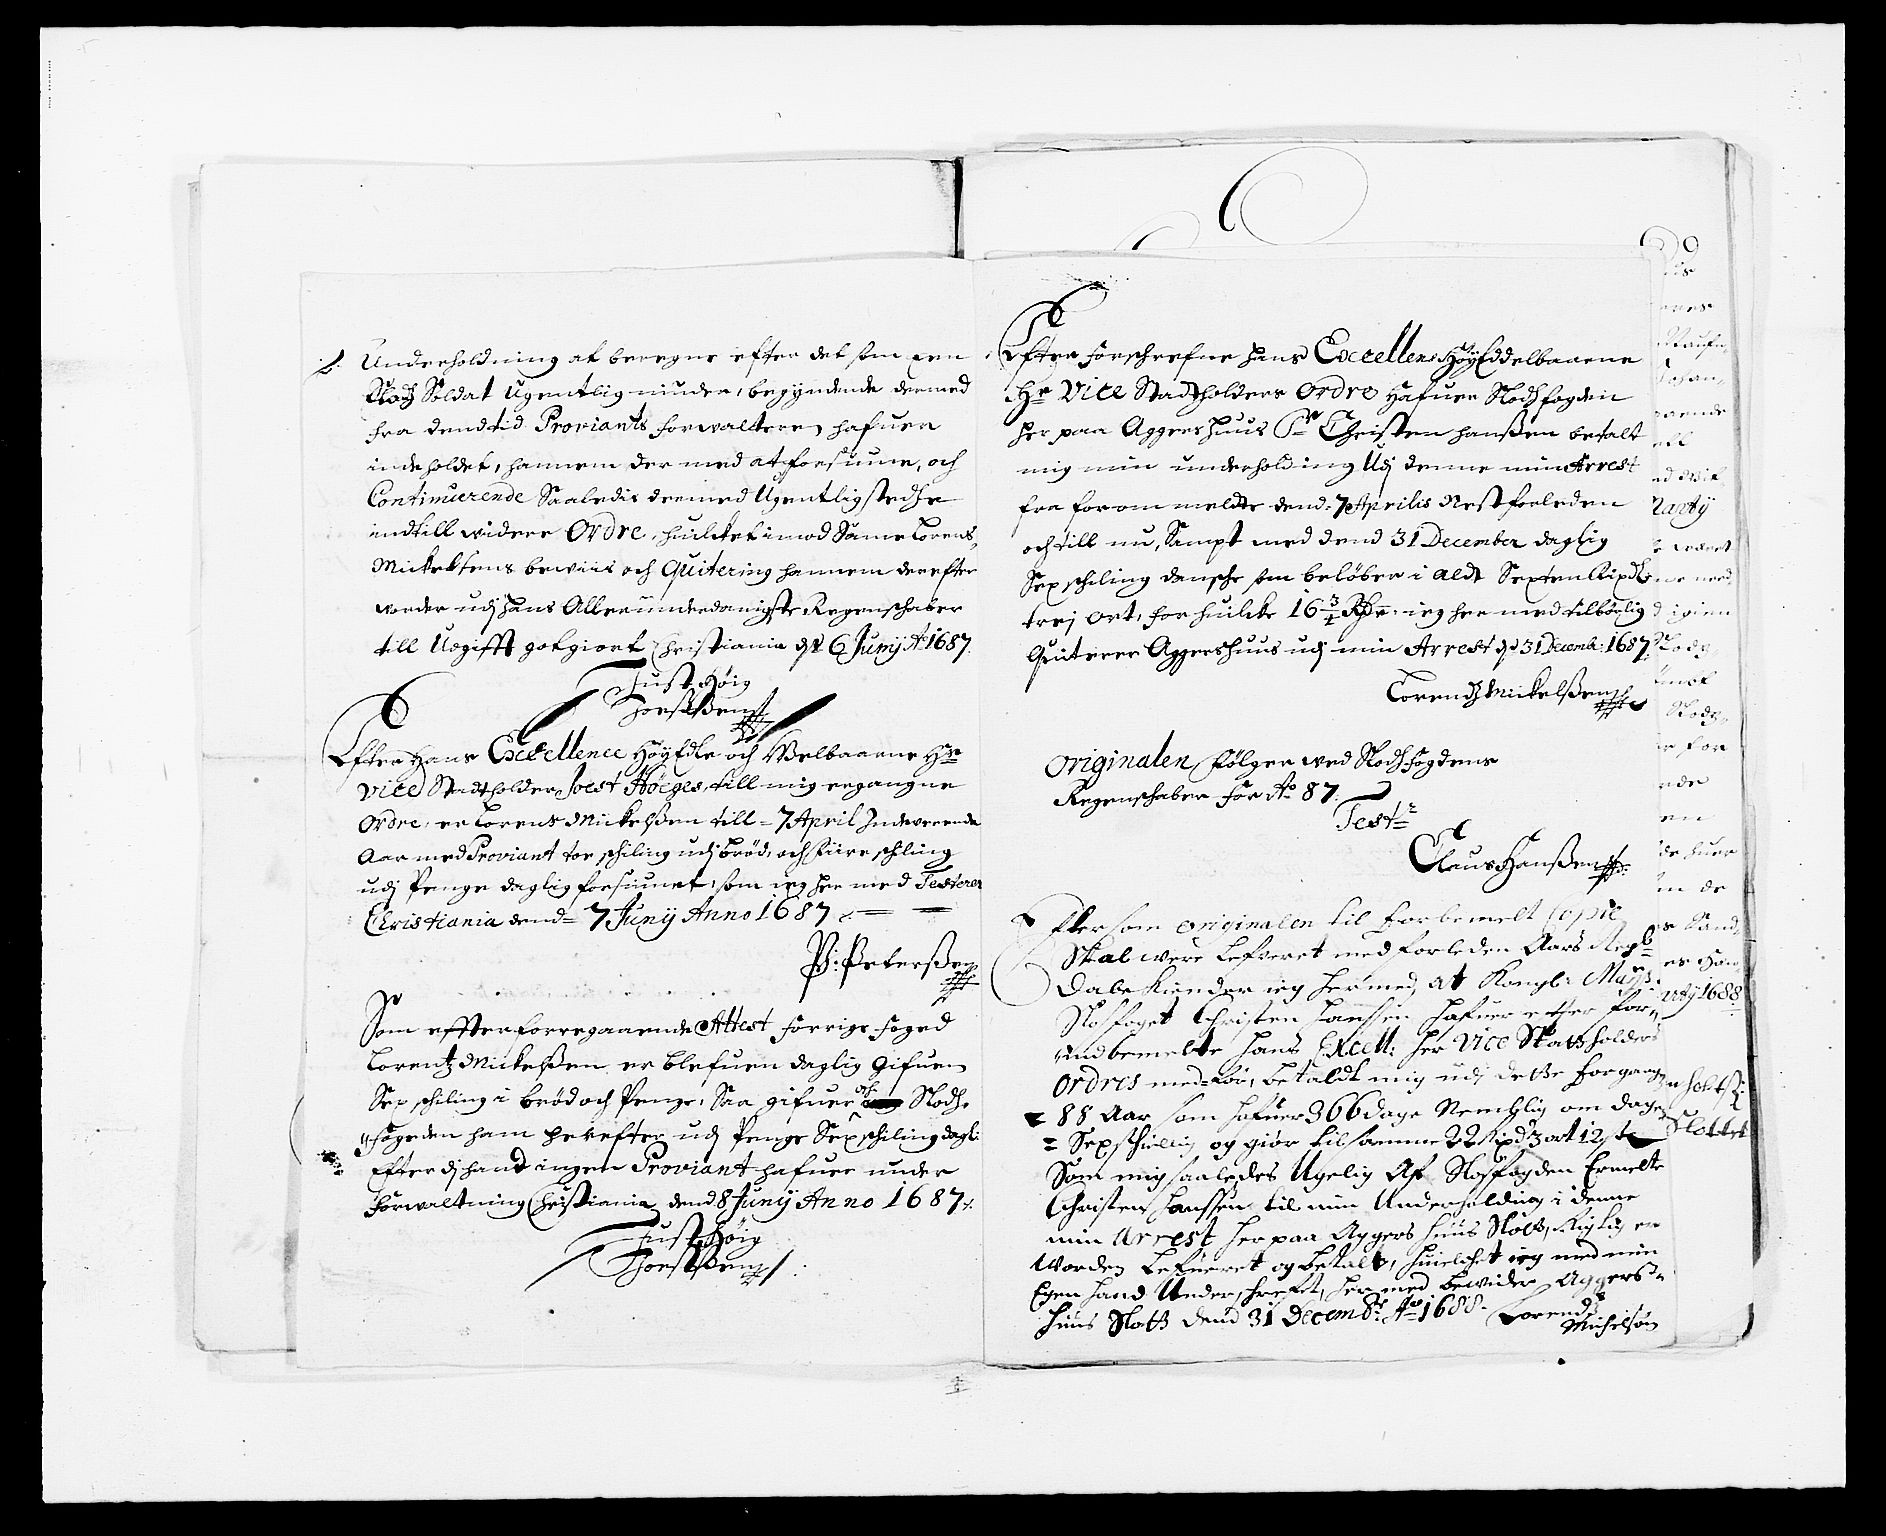 Underholdning at beregne efter det som een
Slodz Soldat Ugentlig niuder, begyndende dermed
fra dend tid Proviants forwalteren hafuer
indeholdet, hannem der med at forsiune, och
Continuerende Saaledis dermed Ugentlig
indtill widere Ordre, huilcket imod Samme Lorens
Mickelsens beviis och Quitering hannem derefter
worder udj hans Allerunderdanigste Regenschaber
till Udgifft gotgiort Christiania dend 6 Junij Ao 1687.
Just Høig
Efter Hans Excellence HøyEdle och Welbaarne Hr
Vice Stadtholder Joest Høeges, till mig ergangne
Ordre, er Lorens Mickelßen till 7 April Indeverende
Aar med Proviant toe schiling udj brød, och fiire schiling
udj Penge daglig forsiunet, som ieg her med Testerer
Christiania dend 7 Junij Anno 1687
P: Peterßen
Som effter forregaaende Attest forrige foged
Lorentz Mickelßen er blefuen daglig gifuen
Sex schiling i brød och Penge, Saa gifuer Slodz
fogeden ham herefter udj Penge Sex schiling dagl:
Efterdj hand ingen Proviant hafuer under
forwaltning Christiania dend 8 Junij Anno 1687
Just Høig
Efter forschrefne hans Excellens HøyEddelbaarne
Hr Vice Stadtholders Ordre hafuer Slodzfogden
her paa Aggershuus Sr Christen hanßen betalt
mig min underholding Udj denne min Arrest
fra forommeldte dend 7 Aprilis Nest forleden
och till nu, Sampt med dend 31 December daglig
Sex schiling dansche som beløber i aldt Sexten Rixdr
trej ort, for huilcke 16 3/4 Rdr ieg her med tilbørlig
Quiterer Aggershuus udj min Arrest dend 31 Decemb: 1687
Lorendz Mickelßen
Originalen følger wed Slodzfogdens
Regenschaber for Ao 87.
Teste
Claus Hanßen
Eftersom originalen til forbemelt Copie
Skal were Lefveret med forleden Aars Regb
Da bekiender ieg hermed at Kongl: Mayts
Slosfoget Christen Hanssen hafuer efter for
indbemelte hans Excell: her Vice Statzholders
Ordres med før, betaldt mig udj dette forgangne
88 Aar som hafuer 366 dage Nemblig om dagen
Sex schilling og giør tilsamme 22 Rixdr 3 ort 12 s
Som mig saaledes Ugelig Af Slosfogden Ermelte
Christen Hanssen til min Underholding i denne
min Arrest her paa Aggers huus Slott, Rigtig er
Worden Lefueret og betalt, huilchet ieg med min
Egen haand Underschrefet, her med bewider Aggers
huus Slott dend 31 Decembr Ao 1688. Lorendz
Michelsøn